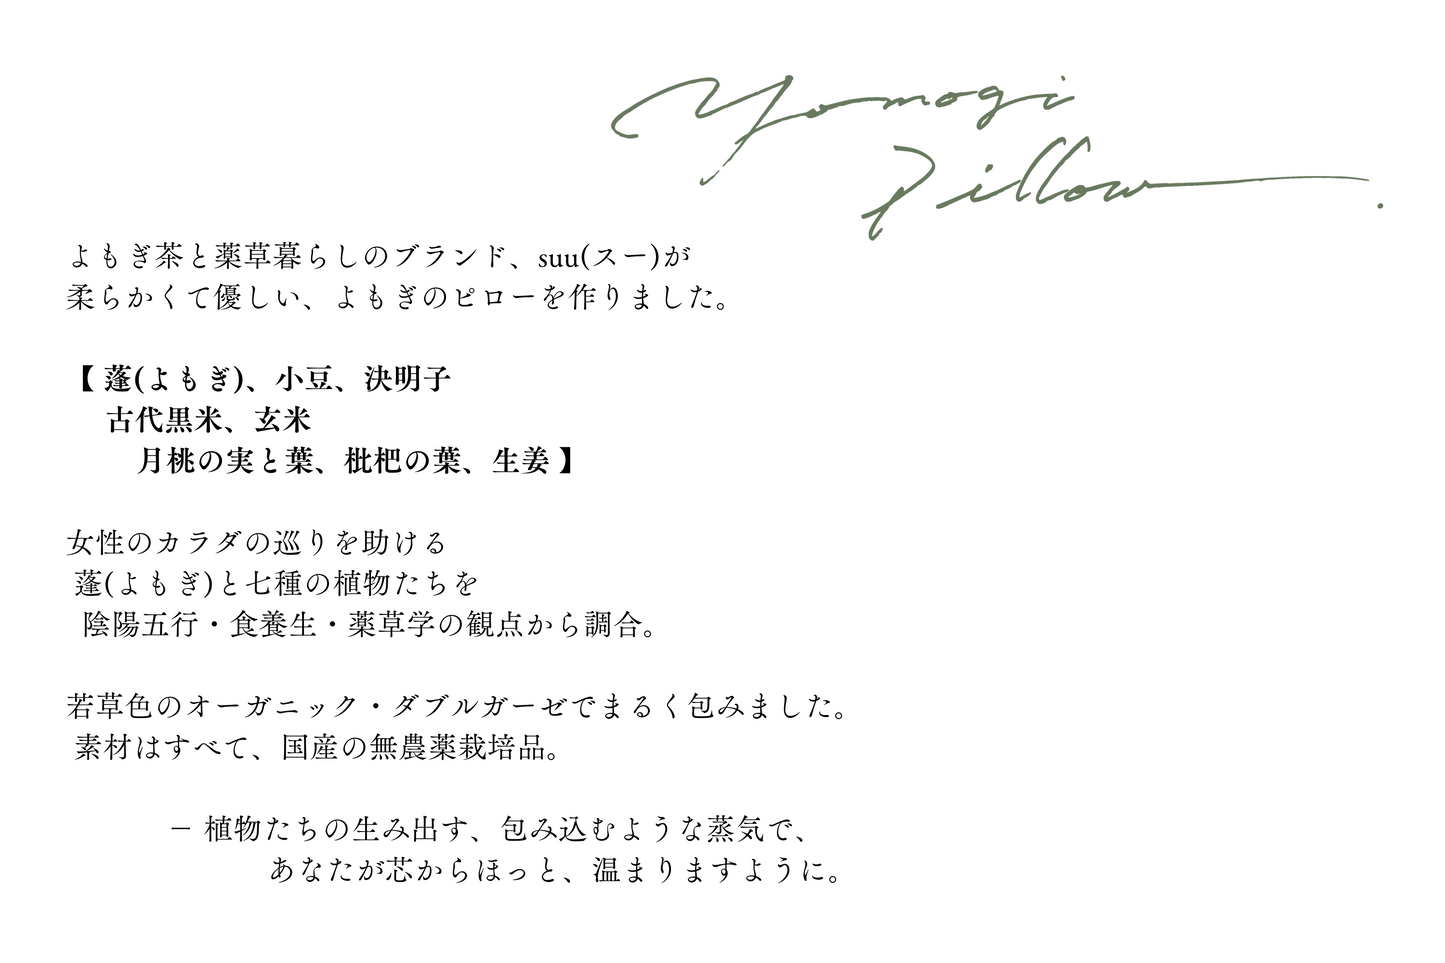 Yomogi
Pillow.
よもぎ茶と薬草暮らしのブランド、suu(スー)が
柔らかくて優しい、よもぎのピローを作りました。
【 蓬(よもぎ)、小豆、決明子
古代黒米、玄米
月桃の実と葉、枇杷の葉、生姜 】
女性のカラダの巡りを助ける
蓬(よもぎ)と七種の植物たちを
陰陽五行・食養生・薬草学の観点から調合。
若草色のオーガニック・ダブルガーゼでまるく包みました。
素材はすべて、国産の無農薬栽培品。
− 植物たちの生み出す、包み込むような蒸気で、
あなたが芯からほっと、温まりますように。